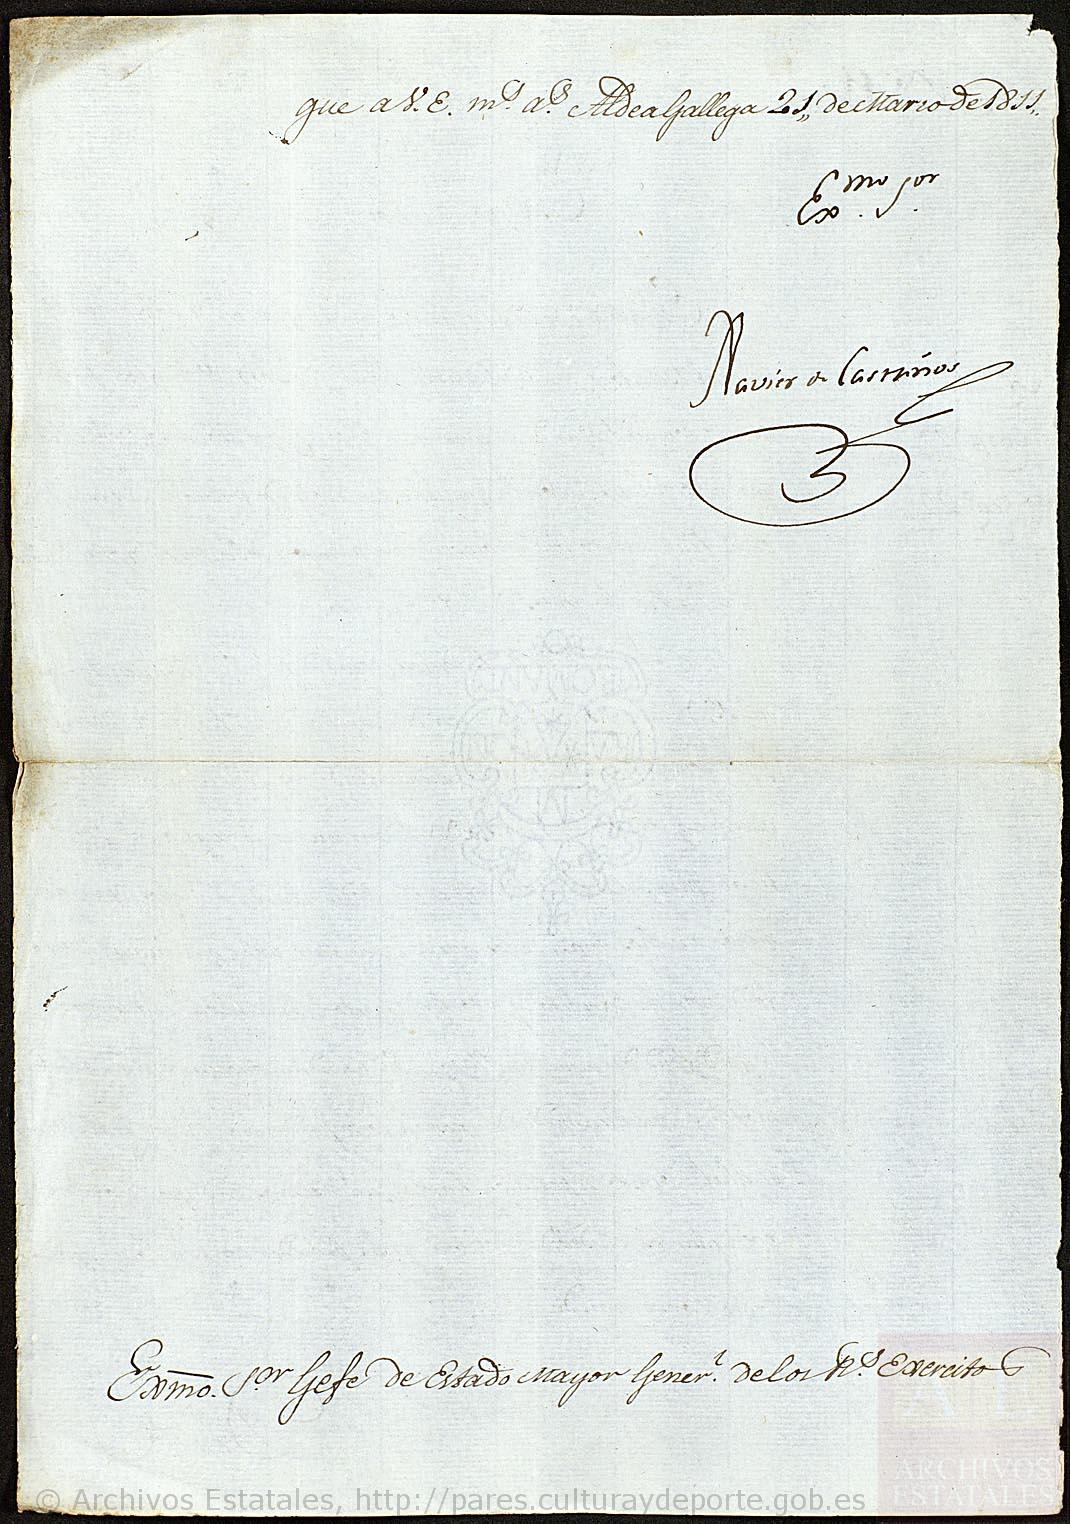 gue a V. E. m.s a.s Aldea Gallega 21,, de Marzo de 1811,,
Ex.mo S.or
Xavier de Castaños
Exmo. S.or Gefe de Estado Mayor Gener.l de los R.s Exercitos
ARCHIVOS
ESTATALES
© Archivos Estatales, http://pares.culturaydeporte.gob.es